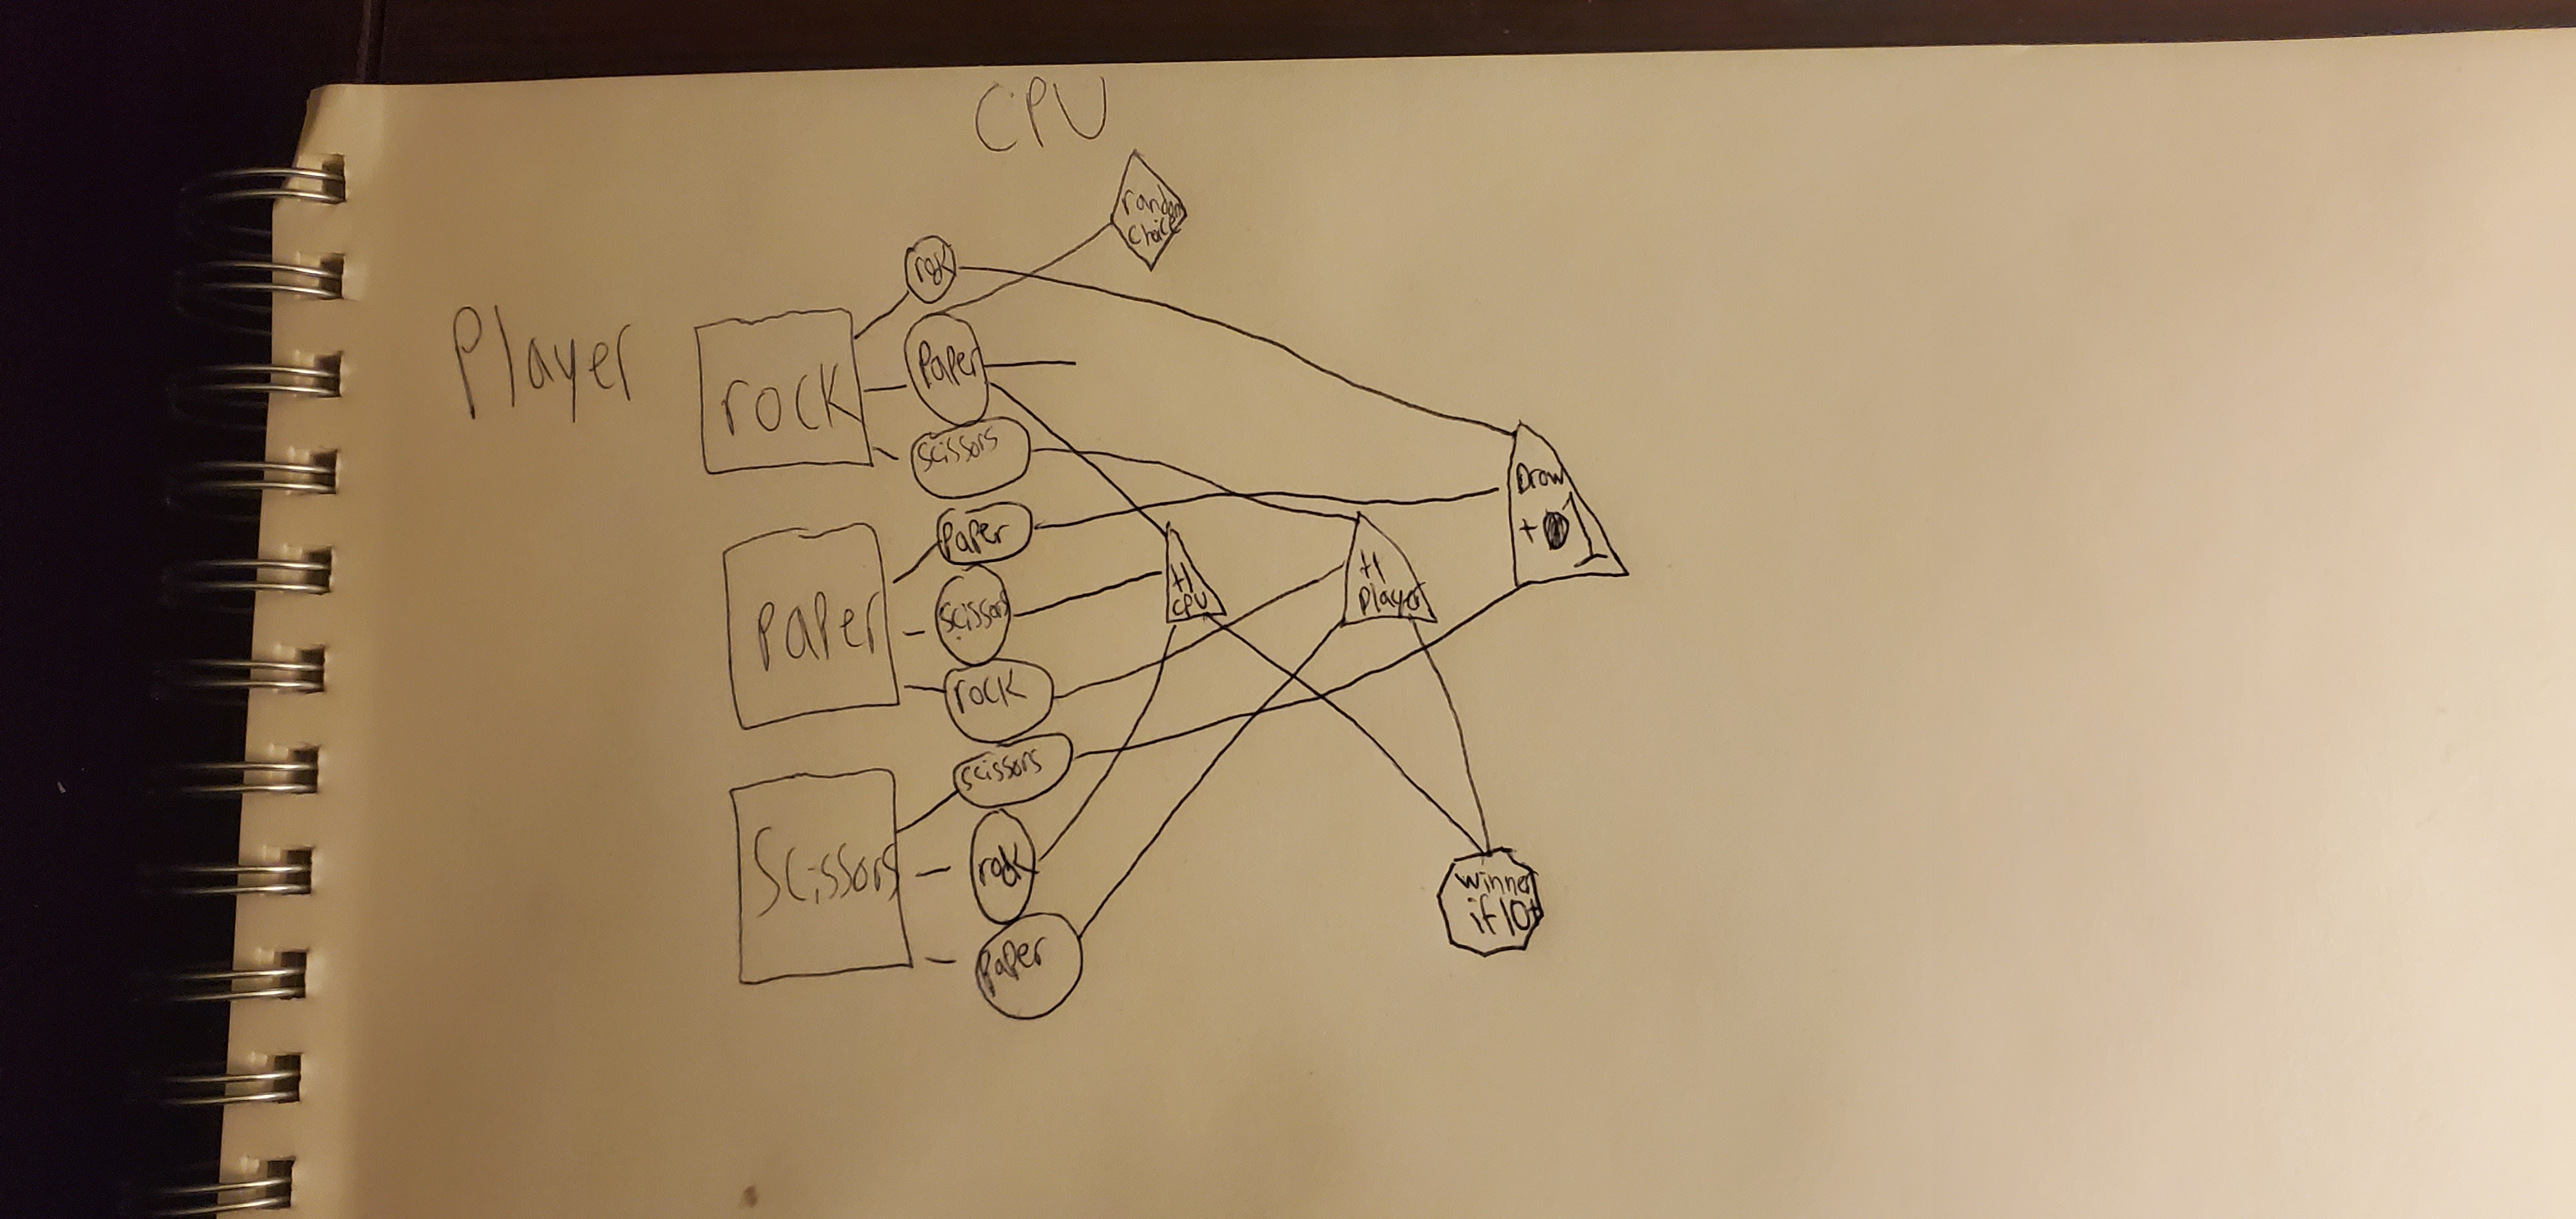 CPU
random
choice
Player
rock
rock
Paper
scissors
Paper
Paper
scissors
rock
Scissors
scissors
rock
Paper
+1
CPU
+1
player
Draw
+ 1
winner
if 10+